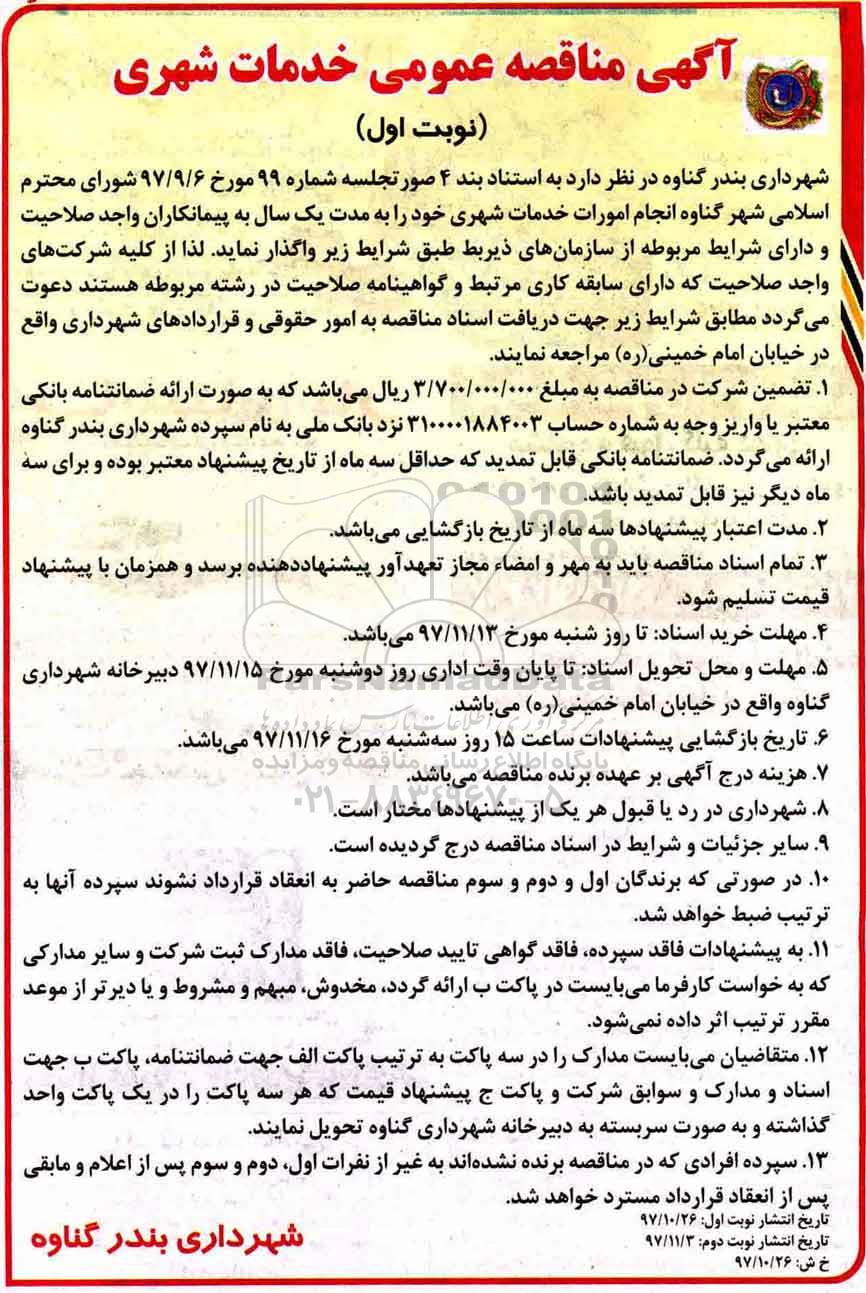 آگهی مناقصه عمومی خدمات شهری
(نوبت اول)
شهرداری بندر گناوه در نظر دارد به استناد بند ۴ صورتجلسه شماره ۹۹ مورخ ۹۷/۹/۶ شورای محترم
اسلامی شهر گناوه انجام امورات خدمات شهری خود را به مدت یک سال به پیمانکاران واجد صلاحیت
و دارای شرایط مربوطه از سازمان‌های ذیربط طبق شرایط زیر واگذار نماید. لذا از کلیه شرکت‌های
واجد صلاحیت که دارای سابقه کاری مرتبط و گواهینامه صلاحیت در رشته مربوطه هستند دعوت
می‌گردد مطابق شرایط زیر جهت دریافت اسناد مناقصه به امور حقوقی و قراردادهای شهرداری واقع
در خیابان امام خمینی(ره) مراجعه نمایند.
۱. تضمین شرکت در مناقصه به مبلغ ۳/۷۰۰/۰۰۰/۰۰۰ ریال می‌باشد که به صورت ارائه ضمانتنامه بانکی
معتبر یا واریز وجه به شماره حساب ۳۱۰۰۰۰۱۸۸۴۰۰۳ نزد بانک ملی به نام سپرده شهرداری بندر گناوه
ارائه می‌گردد. ضمانتنامه بانکی قابل تمدید که حداقل سه ماه از تاریخ پیشنهاد معتبر بوده و برای سه
ماه دیگر نیز قابل تمدید باشد.
۲. مدت اعتبار پیشنهادها سه ماه از تاریخ بازگشایی می‌باشد.
۳. تمام اسناد مناقصه باید به مهر و امضاء مجاز تعهدآور پیشنهاددهنده برسد و همزمان با پیشنهاد
قیمت تسلیم شود.
۴. مهلت خرید اسناد: تا روز شنبه مورخ ۹۷/۱۱/۱۳ می‌باشد.
۵. مهلت و محل تحویل اسناد: تا پایان وقت اداری روز دوشنبه مورخ ۹۷/۱۱/۱۵ دبیرخانه شهرداری
گناوه واقع در خیابان امام خمینی(ره) می‌باشد.
۶. تاریخ بازگشایی پیشنهادات ساعت ۱۵ روز سه‌شنبه مورخ ۹۷/۱۱/۱۶ می‌باشد.
۷. هزینه درج آگهی بر عهده برنده مناقصه می‌باشد.
۸. شهرداری در رد یا قبول هر یک از پیشنهادها مختار است.
۹. سایر جزئیات و شرایط در اسناد مناقصه درج گردیده است.
۱۰. در صورتی که برندگان اول و دوم و سوم مناقصه حاضر به انعقاد قرارداد نشوند سپرده آنها به
ترتیب ضبط خواهد شد.
۱۱. به پیشنهادات فاقد سپرده، فاقد گواهی تایید صلاحیت، فاقد مدارک ثبت شرکت و سایر مدارکی
که به خواست کارفرما می‌بایست در پاکت ب ارائه گردد، مخدوش، مبهم و مشروط و یا دیرتر از موعد
مقرر ترتیب اثر داده نمی‌شود.
۱۲. متقاضیان می‌بایست مدارک را در سه پاکت به ترتیب پاکت الف جهت ضمانتنامه، پاکت ب جهت
اسناد و مدارک و سوابق شرکت و پاکت ج پیشنهاد قیمت که هر سه پاکت را در یک پاکت واحد
گذاشته و به صورت سربسته به دبیرخانه شهرداری گناوه تحویل نمایند.
۱۳. سپرده افرادی که در مناقصه برنده نشده‌اند به غیر از نفرات اول، دوم و سوم پس از اعلام و مابقی
پس از انعقاد قرارداد مسترد خواهد شد.
تاریخ انتشار نوبت اول: ۹۷/۱۰/۲۶
تاریخ انتشار نوبت دوم: ۹۷/۱۱/۳
خ ش: ۹۷/۱۰/۲۶
شهرداری بندر گناوه
ParsNamadData
پایگاه اطلاع رسانی مناقصه و مزایده
۰۲۱-۸۸۳۴۹۶۷۰-۵